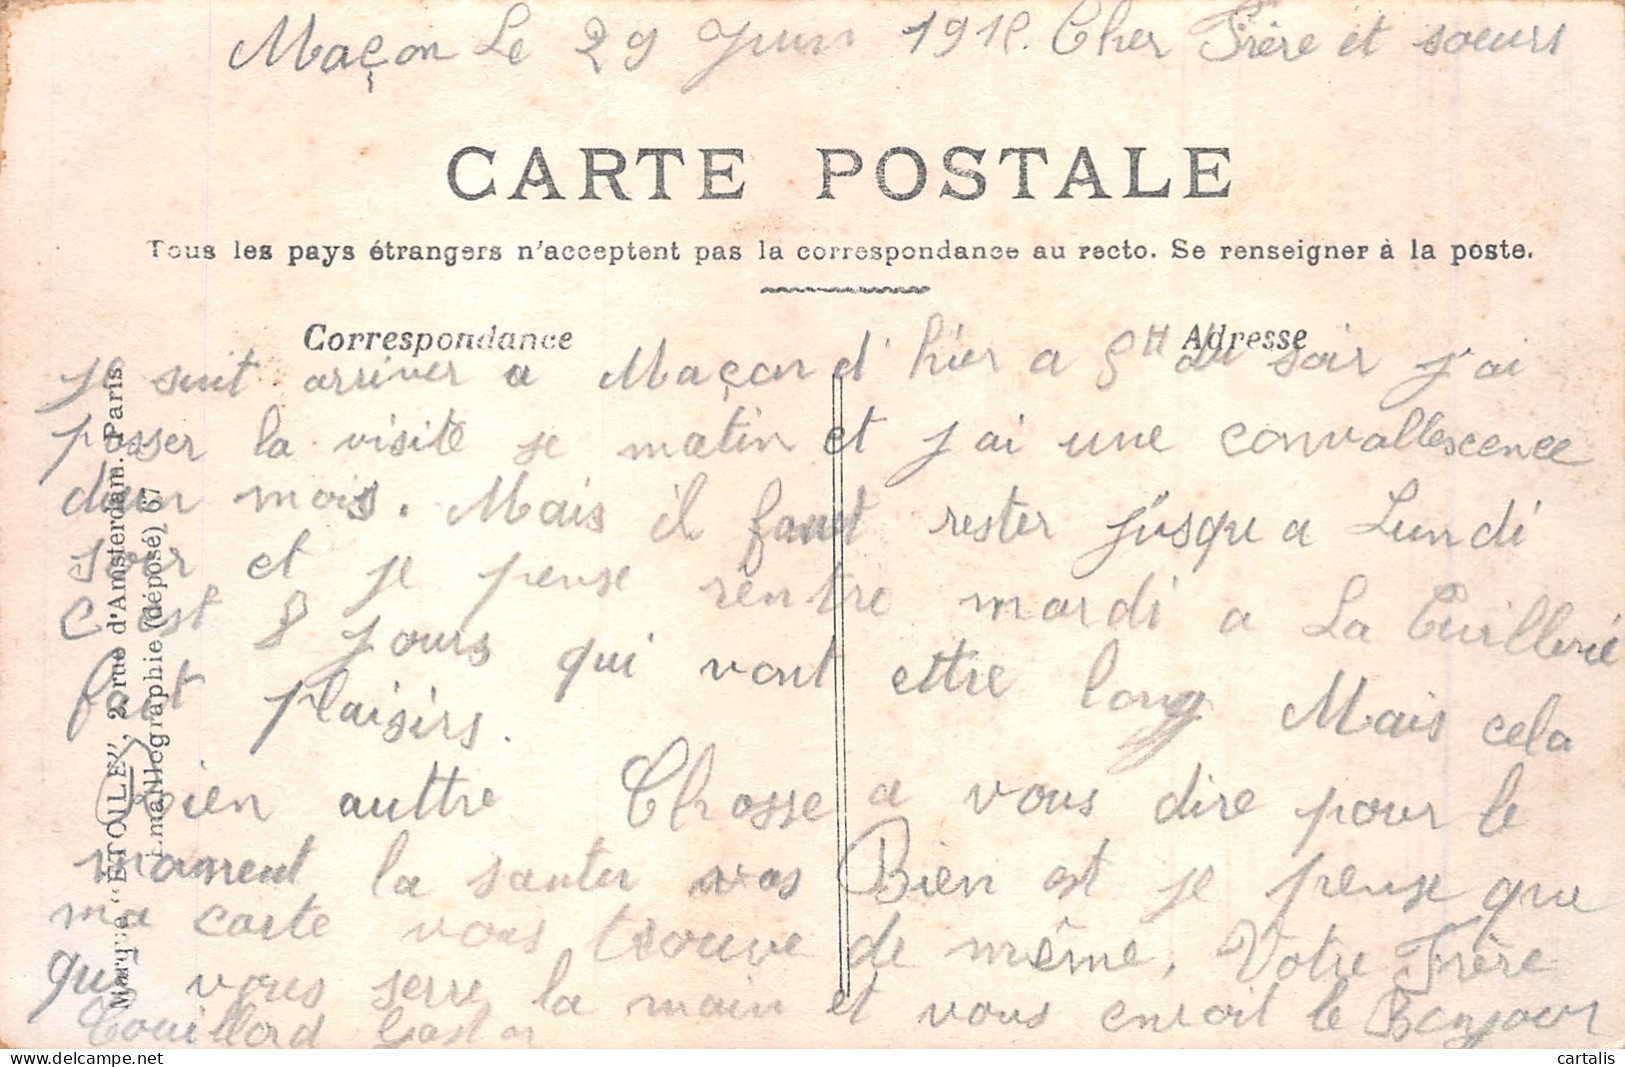 Maçon Le 29 Juin 191 . Cher Frère et soeurs
CARTE POSTALE
Tous les pays étrangers n'acceptent pas la correspondance au recto. Se renseigner à la poste.
Correspondance
Adresse
je suit arriver a Maçon d'hier a 8H du soir j'ai
passer la visite se matin et j ai une convallescence
d'un mois. Mais il faut rester jusqu a Lundi
soir et je pense rentre mardi a La
C est 8 jours qui vont ettre long Mais cela
fait plaisirs.
Rien auttre Chosse a vous dire pour le
moment la santer vas Bien est je pense que
ma carte vous trouve de même. Votre Frère
qui vous serre la main et vous envoit le Bonjour
Gaston
Marque "ETOILE", 2, rue d'Amsterdam. Paris
Emaillographie (déposé) 67
cartalis